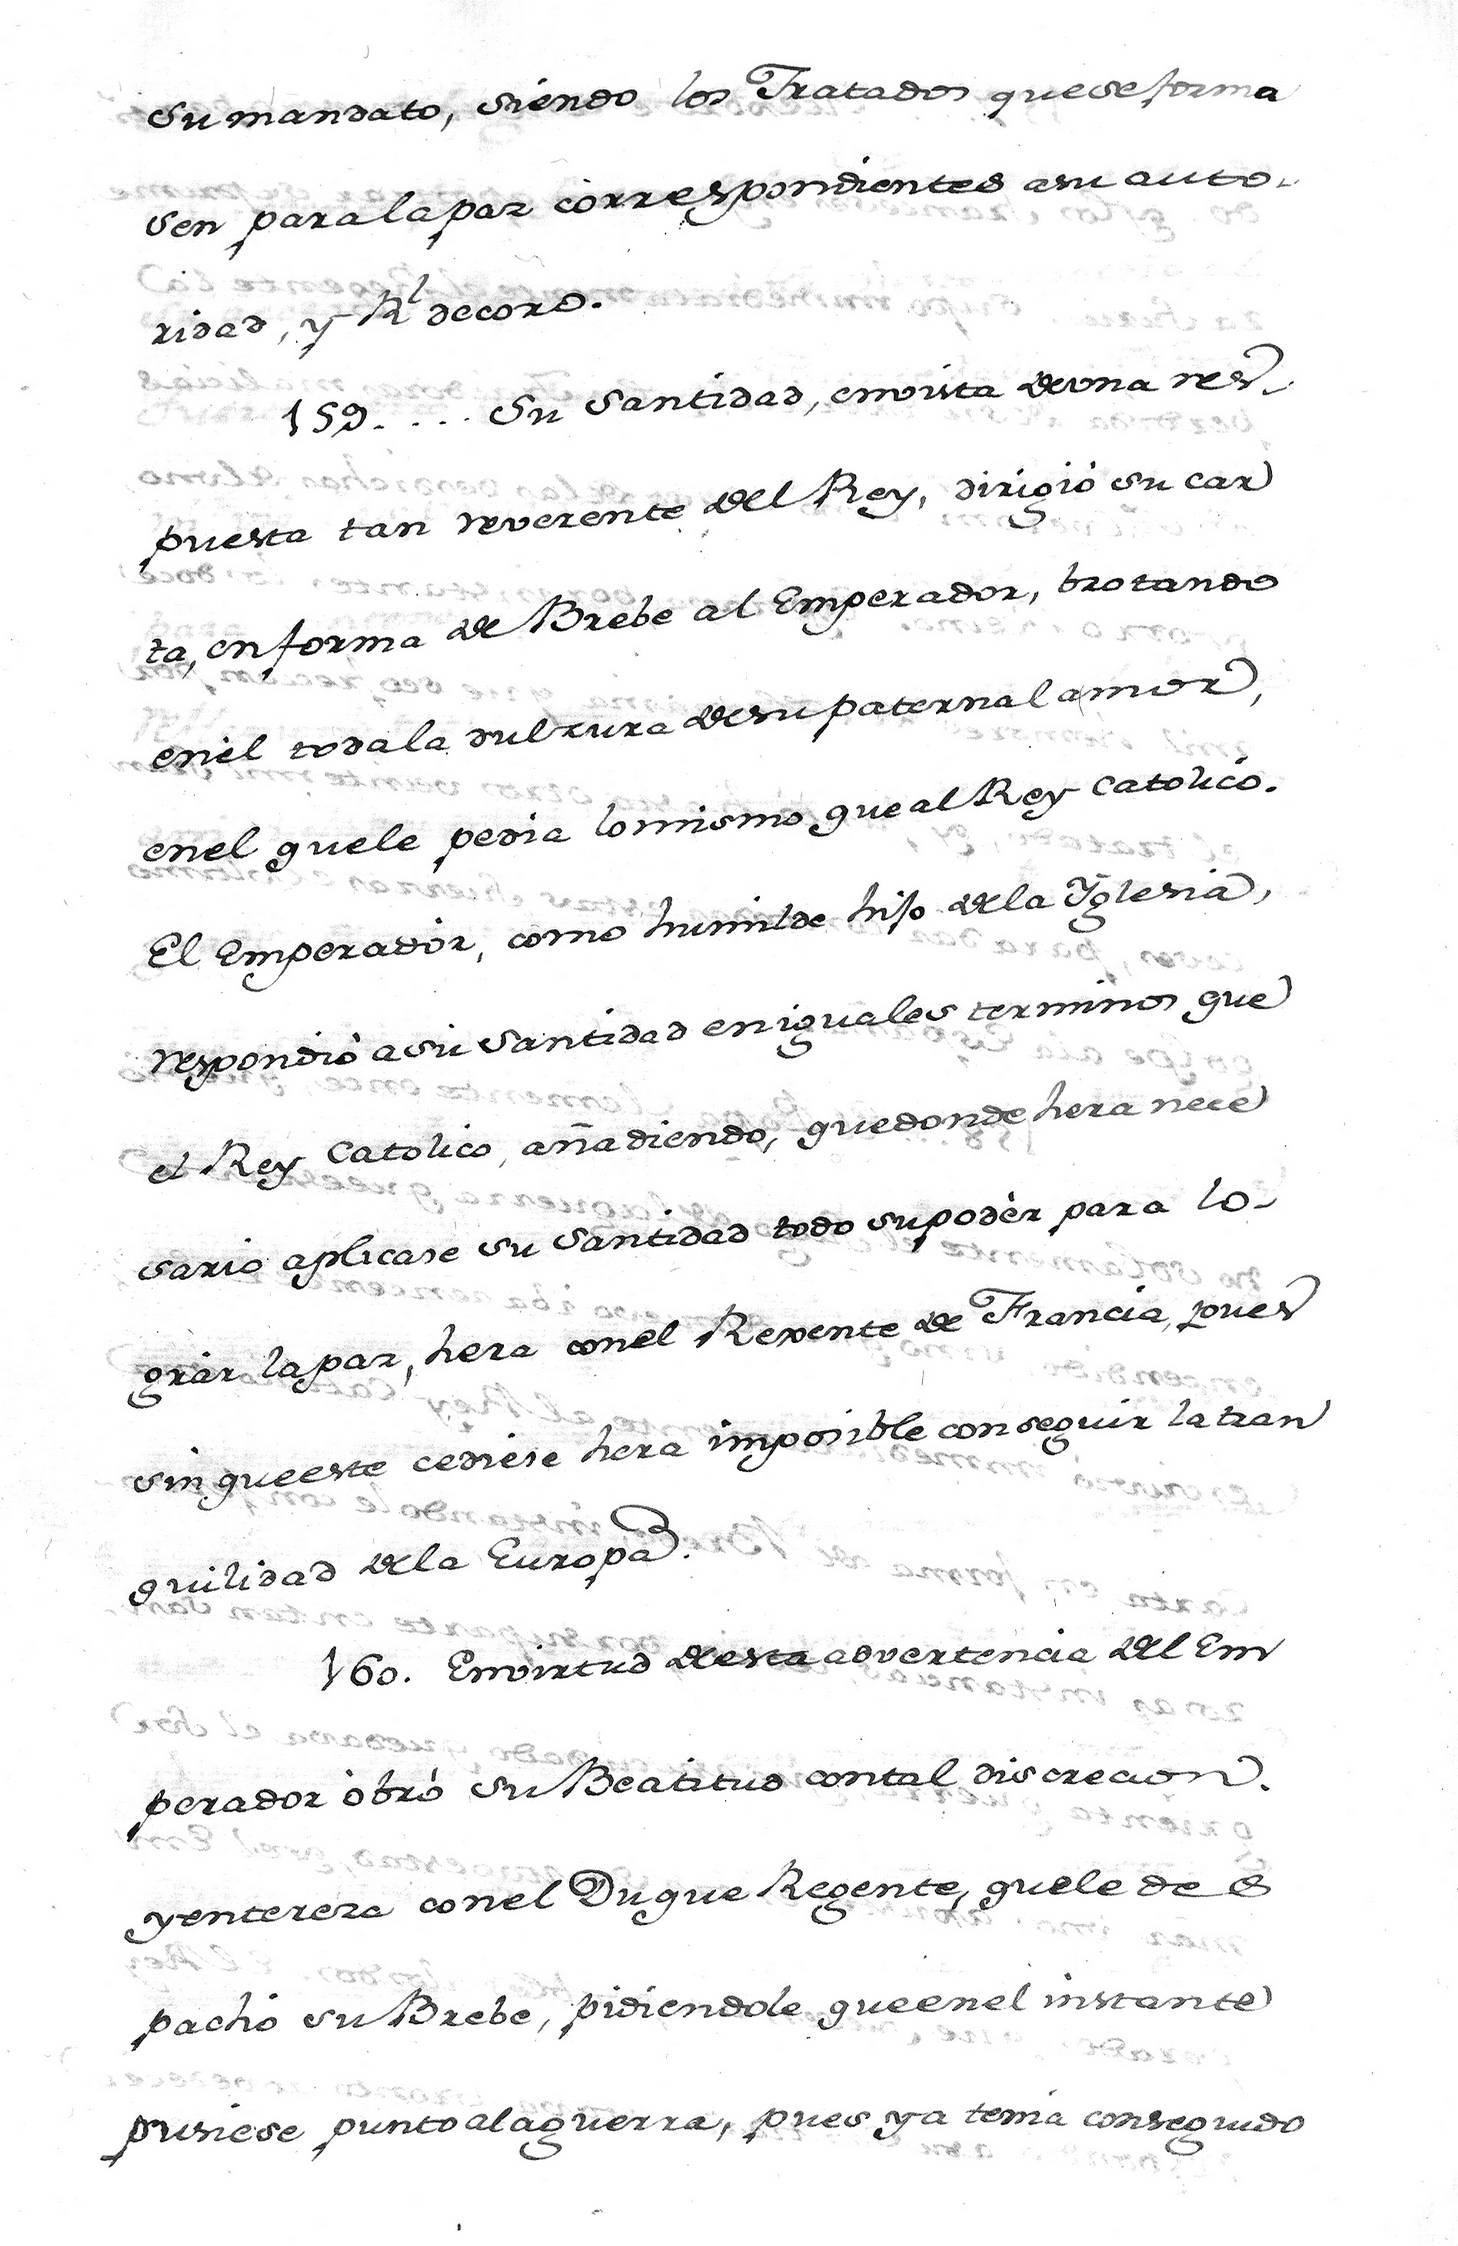 su mandato, siendo los Tratados que se forma
sen para la paz correspondientes a su auto-
ridad, y Rl decoro.
159. ... Su Santidad, en vista de una res-
puesta tan reverente del Rey, dirigió su car
ta, en forma de Brebe al Emperador, brotando
en èl toda la dulzura de su paternal amor,
en el que le pedia lo mismo que al Rey Catolico.
El Emperador, como humilde hijo de la Yglesia,
respondiò a su Santidad en iguales terminos que
el Rey Catolico, añadiendo, que donde hera nece
sario aplicase su Santidad todo su podèr para lo-
gràr la paz, hera con el Rexente de Francia, pues
sin que este cediese hera imposible conseguir la tran
quilidad de la Europa.
160. En virtud de esta advertencia del Em
perador òbró su Beatitud con tal discrecion.
y entereza con el Duque Regente, que le des
pachó su Brebe, pidiendole que en el instante
pusiese punto a la guerra, pues ya tenia conseguido